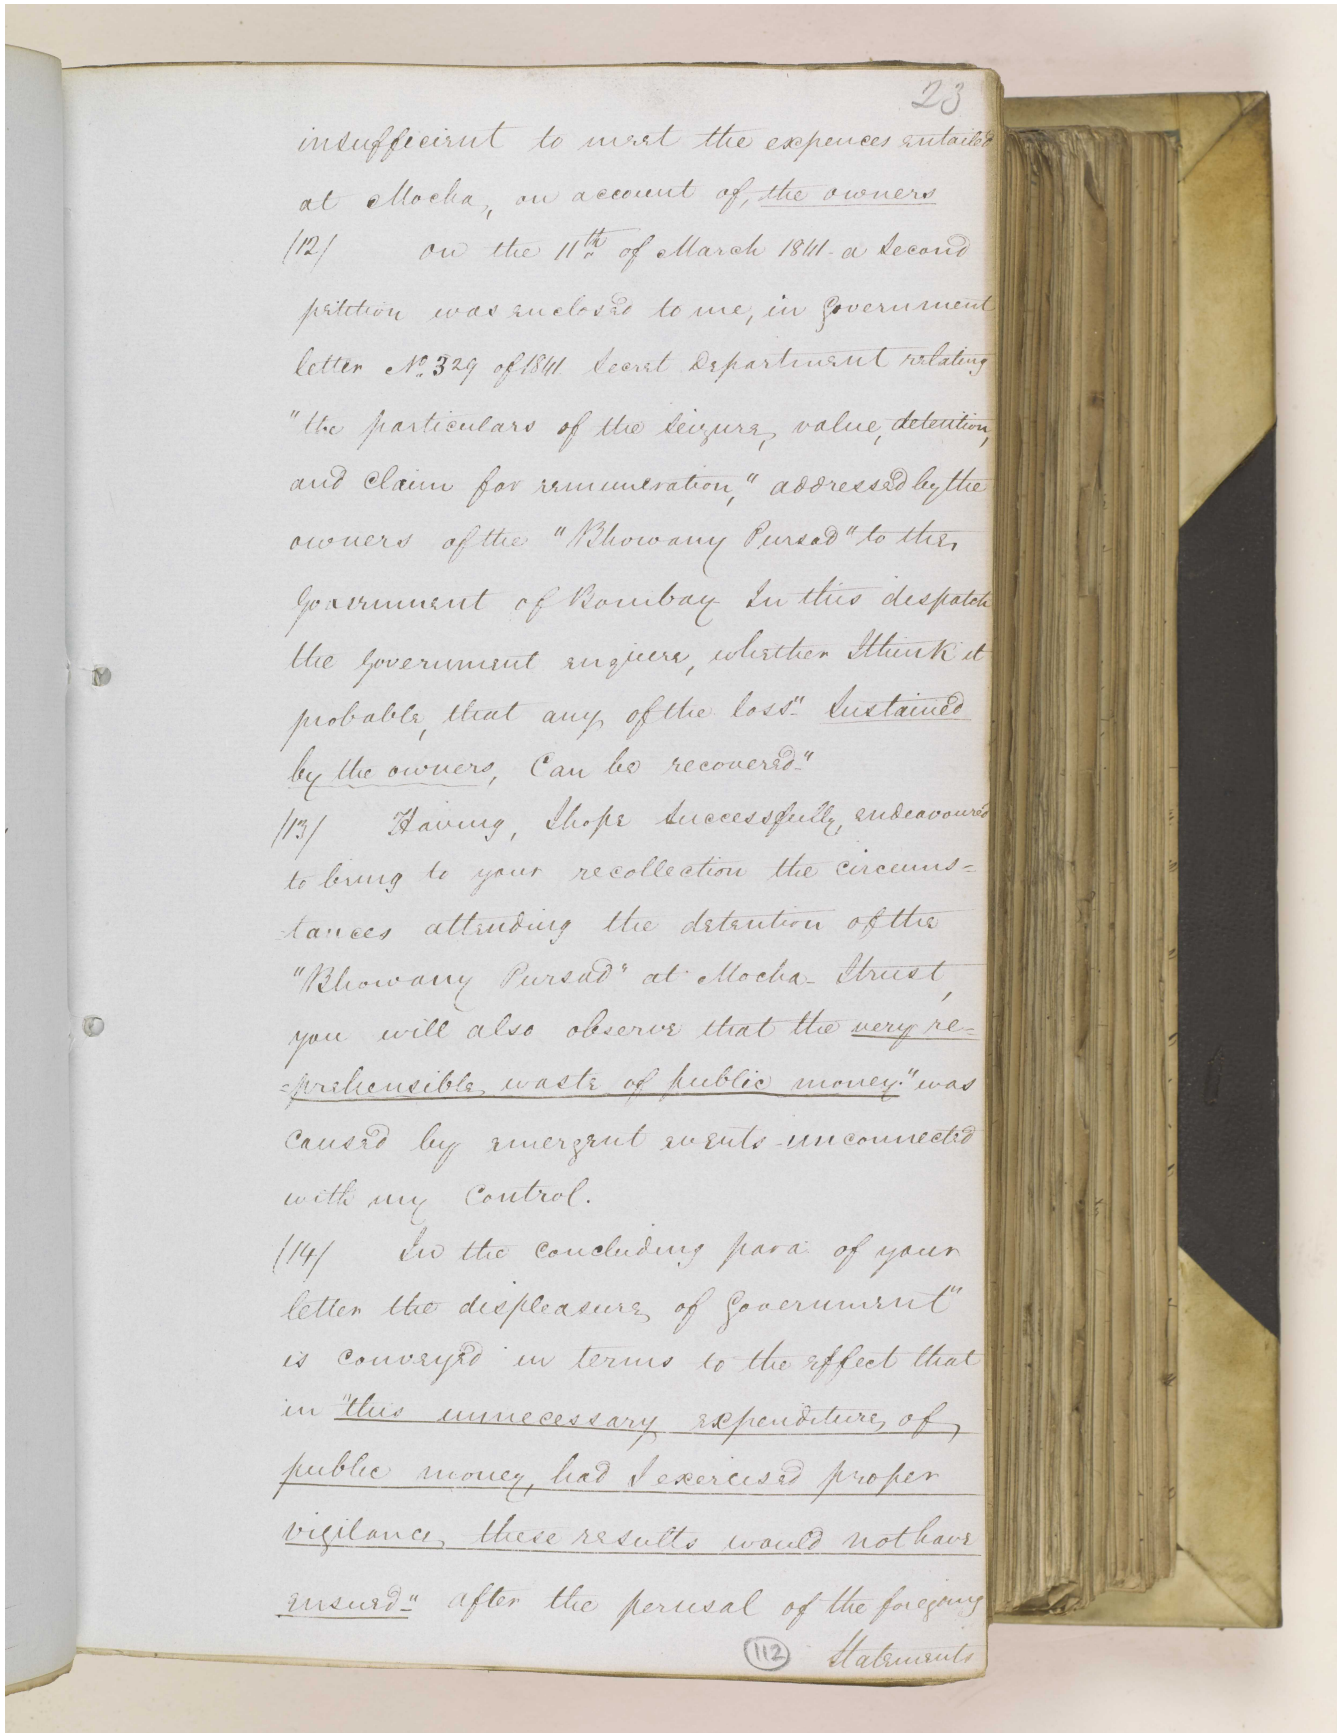 23
insufficient to meet the expences entailed
at Mocha, on account of, the owners
/12/ On the 11th of March 1841 - a Second
petition was enclosed to me, in Government
letter No. 329 of 1841 Secret Department relating
"the particulars of the Seizure, value, detention,
and Claim for remuneration," addressed by the
owners of the "Bhowany Pursad" to the
Government of Bombay In this despatch
the Government enquire, whether I think it
probable, that any of the loss" Sustained
by the owners, Can be recovered"
/13/ Having, I hope Successfully, endeavoured
to bring to your recollection the circums=
tances attending the detention of the
"Bhowany Pursad" at Mocha - I trust,
you will also observe that the very re=
=prehensible waste of public money." was
Caused by emergent events unconnected
with my Control.
/14/ In the Concluding para of your
letter the displeasure of Government"
is conveyed in terms to the effect that
in "this unnecessary expenditure, of
public money, had I exercised proper
vigilance, these results would not have
ensued" after the perusal of the foregoing
112 Statements